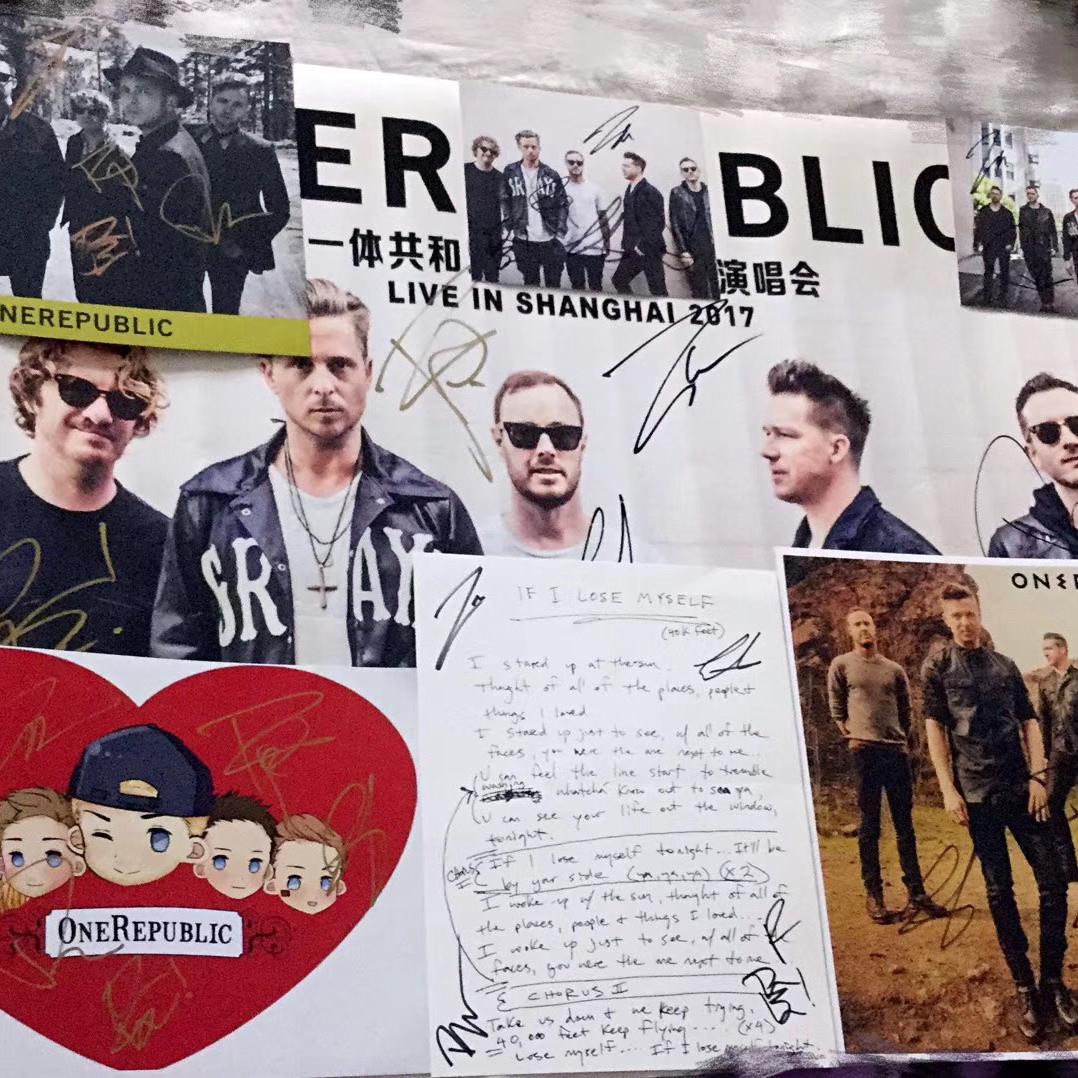 ER
BLIC
一体共和
演唱会
LIVE IN SHANGHAI 2017
NEREPUBLIC
SR
AY
IF I LOSE MYSELF
(40k feet)
I stared up at the sun
thought of all of the places, people &
things I loved
I stared up just to see, w/ all of the
faces, you were the one next to me...
U can feel the line start to tremble
washing
whatcha know out to sea ya,
U can see your life out the window,
tonight.
CHORUS I
If I lose myself tonight... It'll be
by your side (ya, ya, ya) (x2)
I woke up w/ the sun, thought of all of
the places, people & things I loved...
I woke up just to see, w/ all of the
faces, you were the one next to me
CHORUS II
Take us down & we keep trying,
40,000 feet keep flying.... (x4)
Lose myself.... If I lose myself tonight
ONEREPUBLIC
ONER